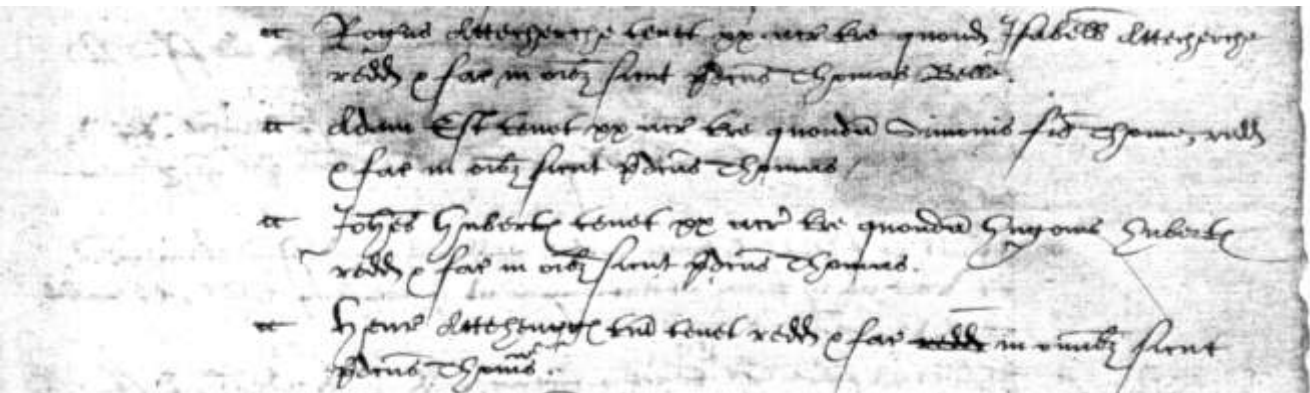 Rogerus Attecherche tenet xx acr tre quond Isabell Attecherche
redd & fac in oibz sicut pdcus Thomas Belle.
Adam Est tenet xx acr tre quonda Simonis fil Thome, redd
& fac in oibz sicut pdcus Thomas
Johes Huberd tenet xx acr tre quonda Hugonis Huberd
redd & fac in oibz sicut pdcus Thomas.
Henr tenet redd & fac redd in omibz sicut
pdcus Thomas.